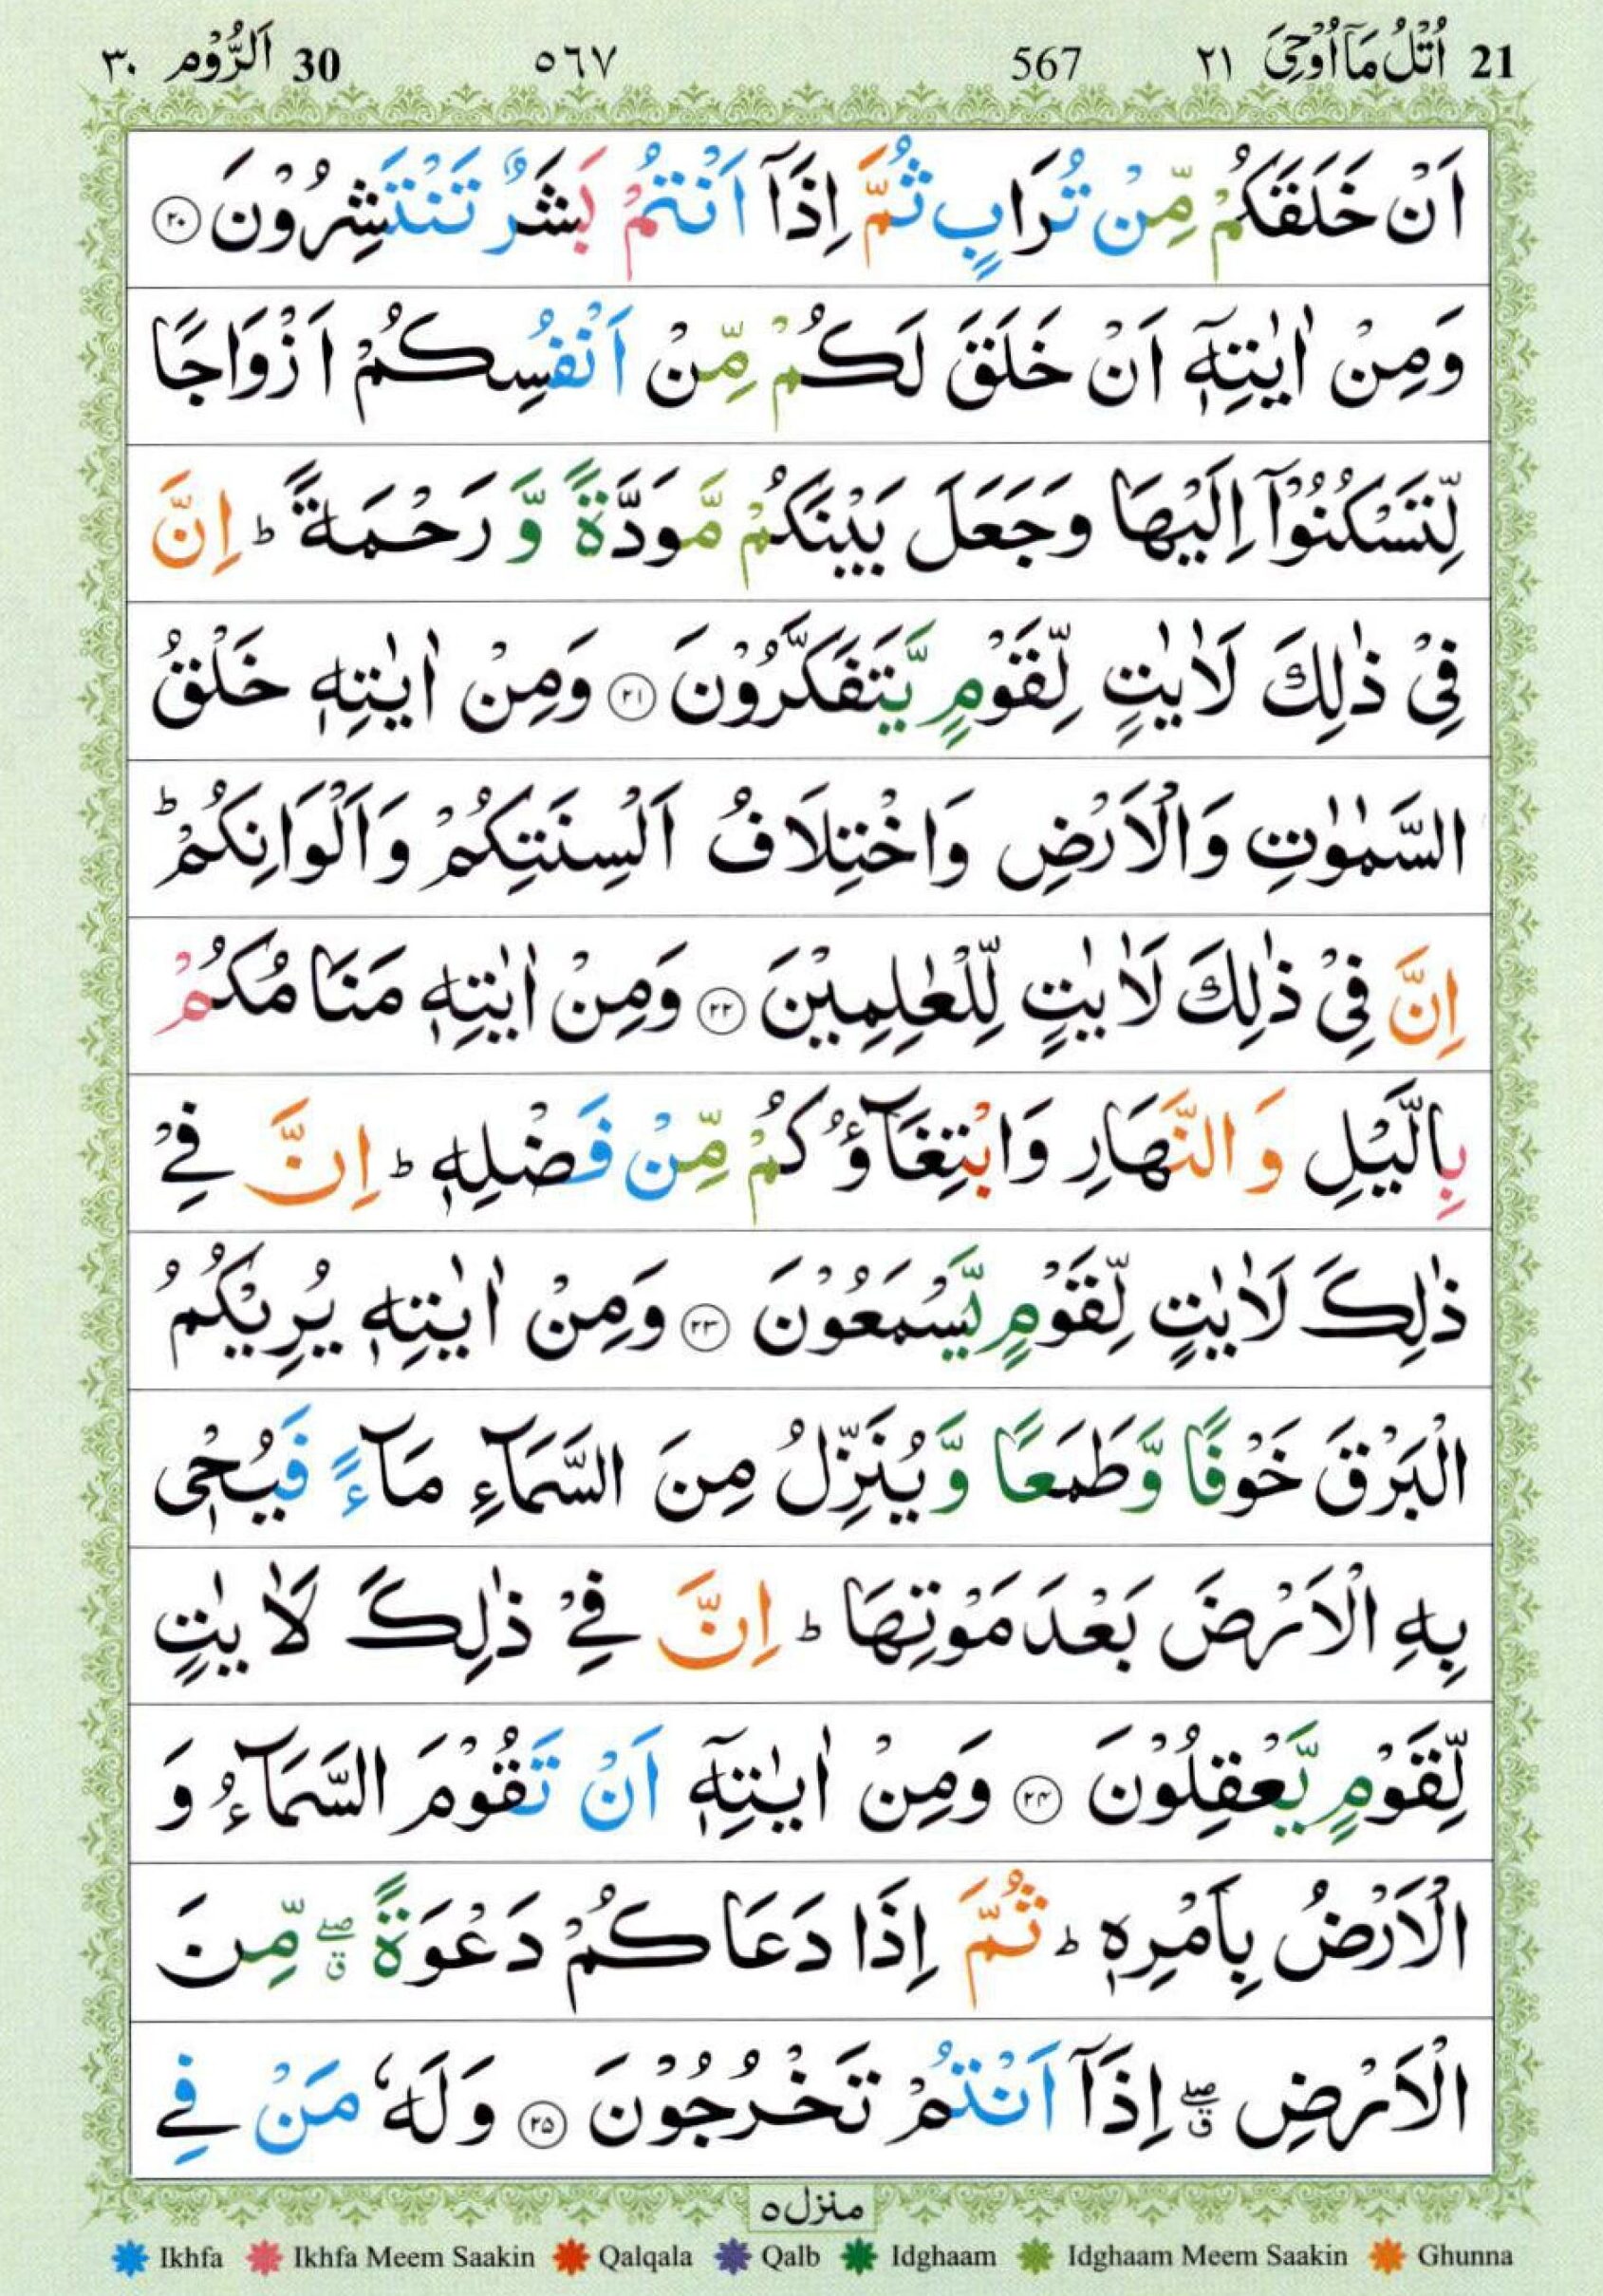 21 اُتْلُ مَاۤ اُوْحِیَ ٢١ 567 ٥٦٧ 30 اَلرُّوْم ٣٠
اَنْ خَلَقَكُمْ مِّنْ تُرَابٍ ثُمَّ اِذَاۤ اَنْتُمْ بَشَرٌ تَنْتَشِرُوْنَ ﴿۲۰﴾
وَمِنْ اٰیٰتِهٖۤ اَنْ خَلَقَ لَكُمْ مِّنْ اَنْفُسِكُمْ اَزْوَاجًا
لِّتَسْكُنُوْۤا اِلَیْهَا وَجَعَلَ بَیْنَكُمْ مَّوَدَّةً وَّ رَحْمَةً ؕ اِنَّ
فِیْ ذٰلِكَ لَاٰیٰتٍ لِّقَوْمٍ یَّتَفَكَّرُوْنَ ﴿۲۱﴾ وَمِنْ اٰیٰتِهٖ خَلْقُ
السَّمٰوٰتِ وَالْاَرْضِ وَاخْتِلَافُ اَلْسِنَتِكُمْ وَاَلْوَانِكُمْ ؕ
اِنَّ فِیْ ذٰلِكَ لَاٰیٰتٍ لِّلْعٰلِمِیْنَ ﴿۲۲﴾ وَمِنْ اٰیٰتِهٖ مَنَامُكُمْ
بِالَّیْلِ وَ النَّهَارِ وَابْتِغَآؤُكُمْ مِّنْ فَضْلِهٖ ؕ اِنَّ فِیْ
ذٰلِكَ لَاٰیٰتٍ لِّقَوْمٍ یَّسْمَعُوْنَ ﴿۲۳﴾ وَمِنْ اٰیٰتِهٖ یُرِیْكُمُ
الْبَرْقَ خَوْفًا وَّطَمَعًا وَّیُنَزِّلُ مِنَ السَّمَآءِ مَآءً فَیُحْیٖ
بِهِ الْاَرْضَ بَعْدَ مَوْتِهَا ؕ اِنَّ فِیْ ذٰلِكَ لَاٰیٰتٍ
لِّقَوْمٍ یَّعْقِلُوْنَ ﴿۲۴﴾ وَمِنْ اٰیٰتِهٖۤ اَنْ تَقُوْمَ السَّمَآءُ وَ
الْاَرْضُ بِاَمْرِهٖ ؕ ثُمَّ اِذَا دَعَاكُمْ دَعْوَةً ۖۗ مِّنَ
الْاَرْضِ ۖۗ اِذَاۤ اَنْتُمْ تَخْرُجُوْنَ ﴿۲۵﴾ وَلَهٗ مَنْ فِی
منزل ۵
Ikhfa Ikhfa Meem Saakin Qalqala Qalb Idghaam Idghaam Meem Saakin Ghunna